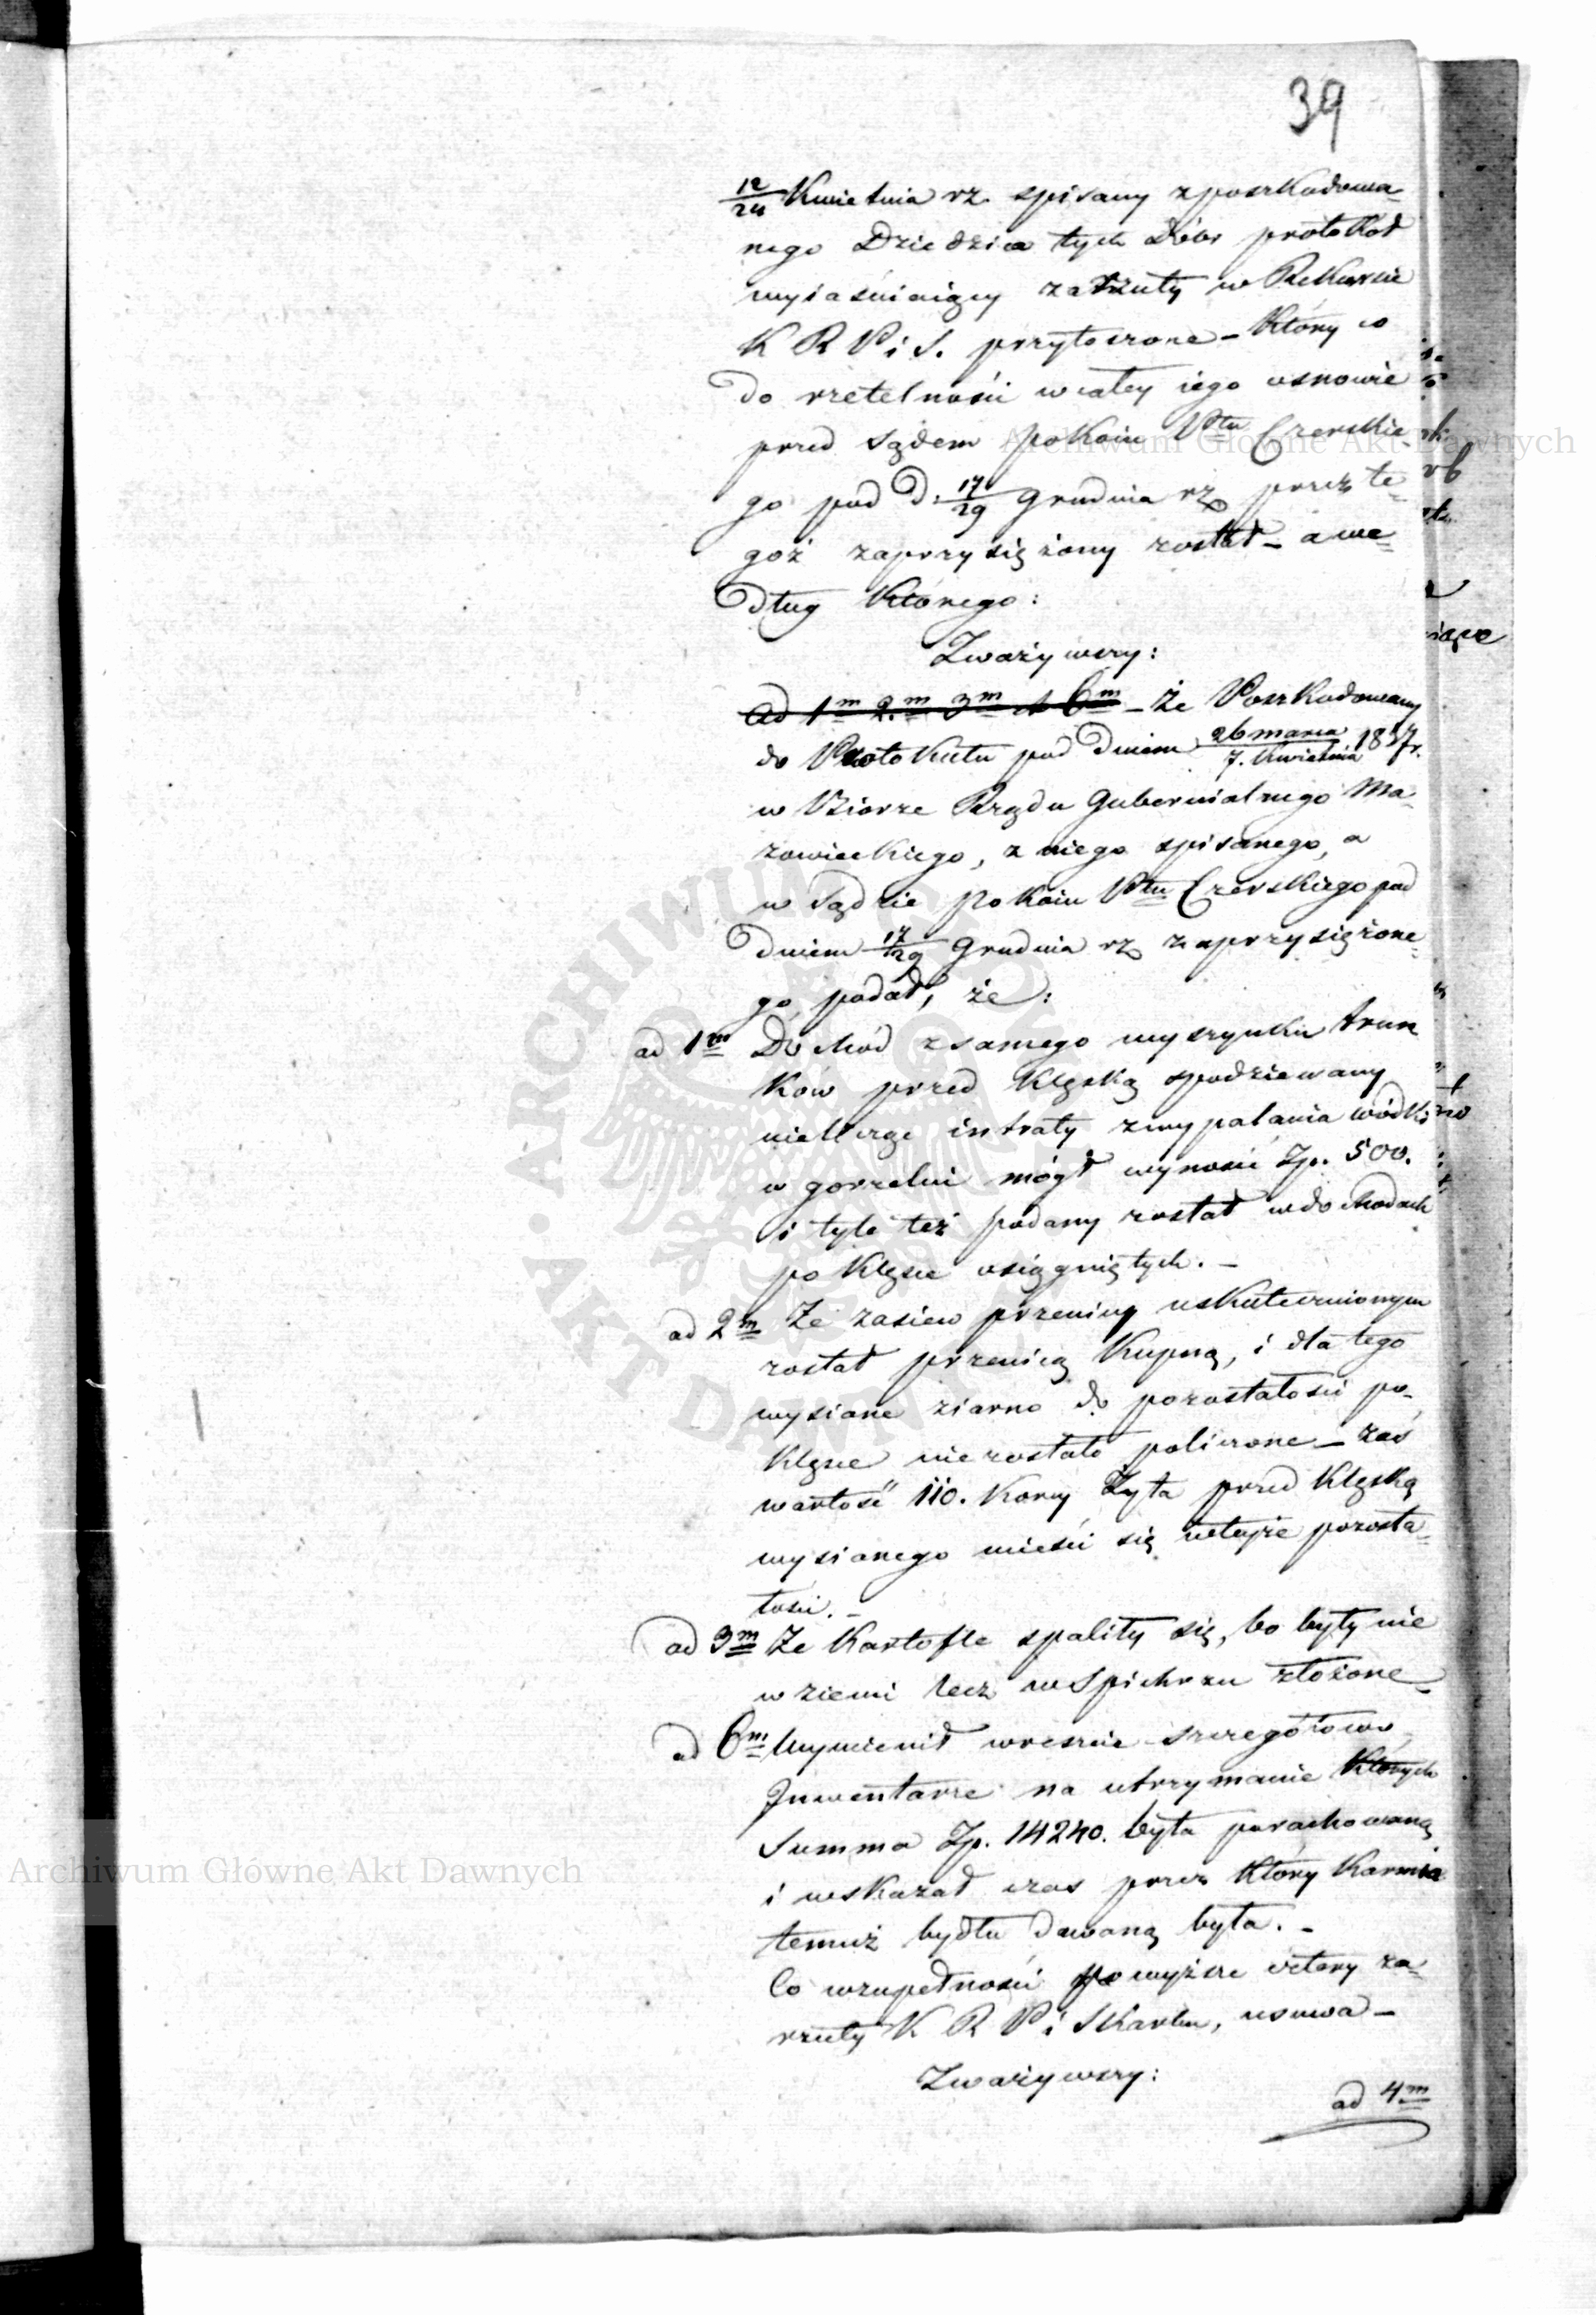 39
12/24 Kwietnia rz. spisany z poszkodowa=
nego Dziedzica tych Dóbr protokół
wyiaśniaiący zarzuty w Rekursie
K R P i S. przytoczone – który co
do rzetelności w całey iego osnowie
przed Sądem Pokoiu Ptu Czerskie=
go pod d. 17/29 Grudnia rz przez te=
goż zaprzysiężony został – a we=
dług którego:
Zważywszy:
ad 1m 2m 3m et 6m – że Poszkodowany
do Protokułu pod dniem 26 marca/7. Kwietnia 1837r.
w Biorze Rządu Gubernialnego Ma=
zowieckiego, z niego spisanego, a
w Sądzie Pokoiu Ptu Czerskiego pod
dniem 17/29 Grudnia rz zaprzysiężone=
go podał, że:
ad 1m Dochód z samego wyszynku trun
ków przed klęską spodziewany
nielicząc intraty z wypalania wódki
w gorzelni mógł wynosić Zp. 500.
i tyle też podany został w dochodach
po klęsce osiągniętych. –
ad 2m Że zasiew pszenicy uskutecznionym
został pszenicą kupną, i dla tego
wysiane ziarno do pozostałości po
klęsce nie zostało policzone – zaś
wartość 110. korcy Żyta przed klęską
wysianego mieści się w teyże pozosta=
łości. –
ad 3m Że kartofle spaliły się, bo były nie
w ziemi lecz w Spichrzu złożone –
ad 6m Wymienił wreszcie szczegółowo
Inwentarze na utrzymanie których
Summa Zp. 14240. była porachowaną
i wskazał czas przez który karmia
temuż bydłu dawaną była. –
Co w zupełności powyższe cztery za=
rzuty K R P i Skarbu, usuwa –
Zważywszy:
ad 4m
Archiwum Główne Akt Dawnych
Archiwum Główne Akt Dawnych